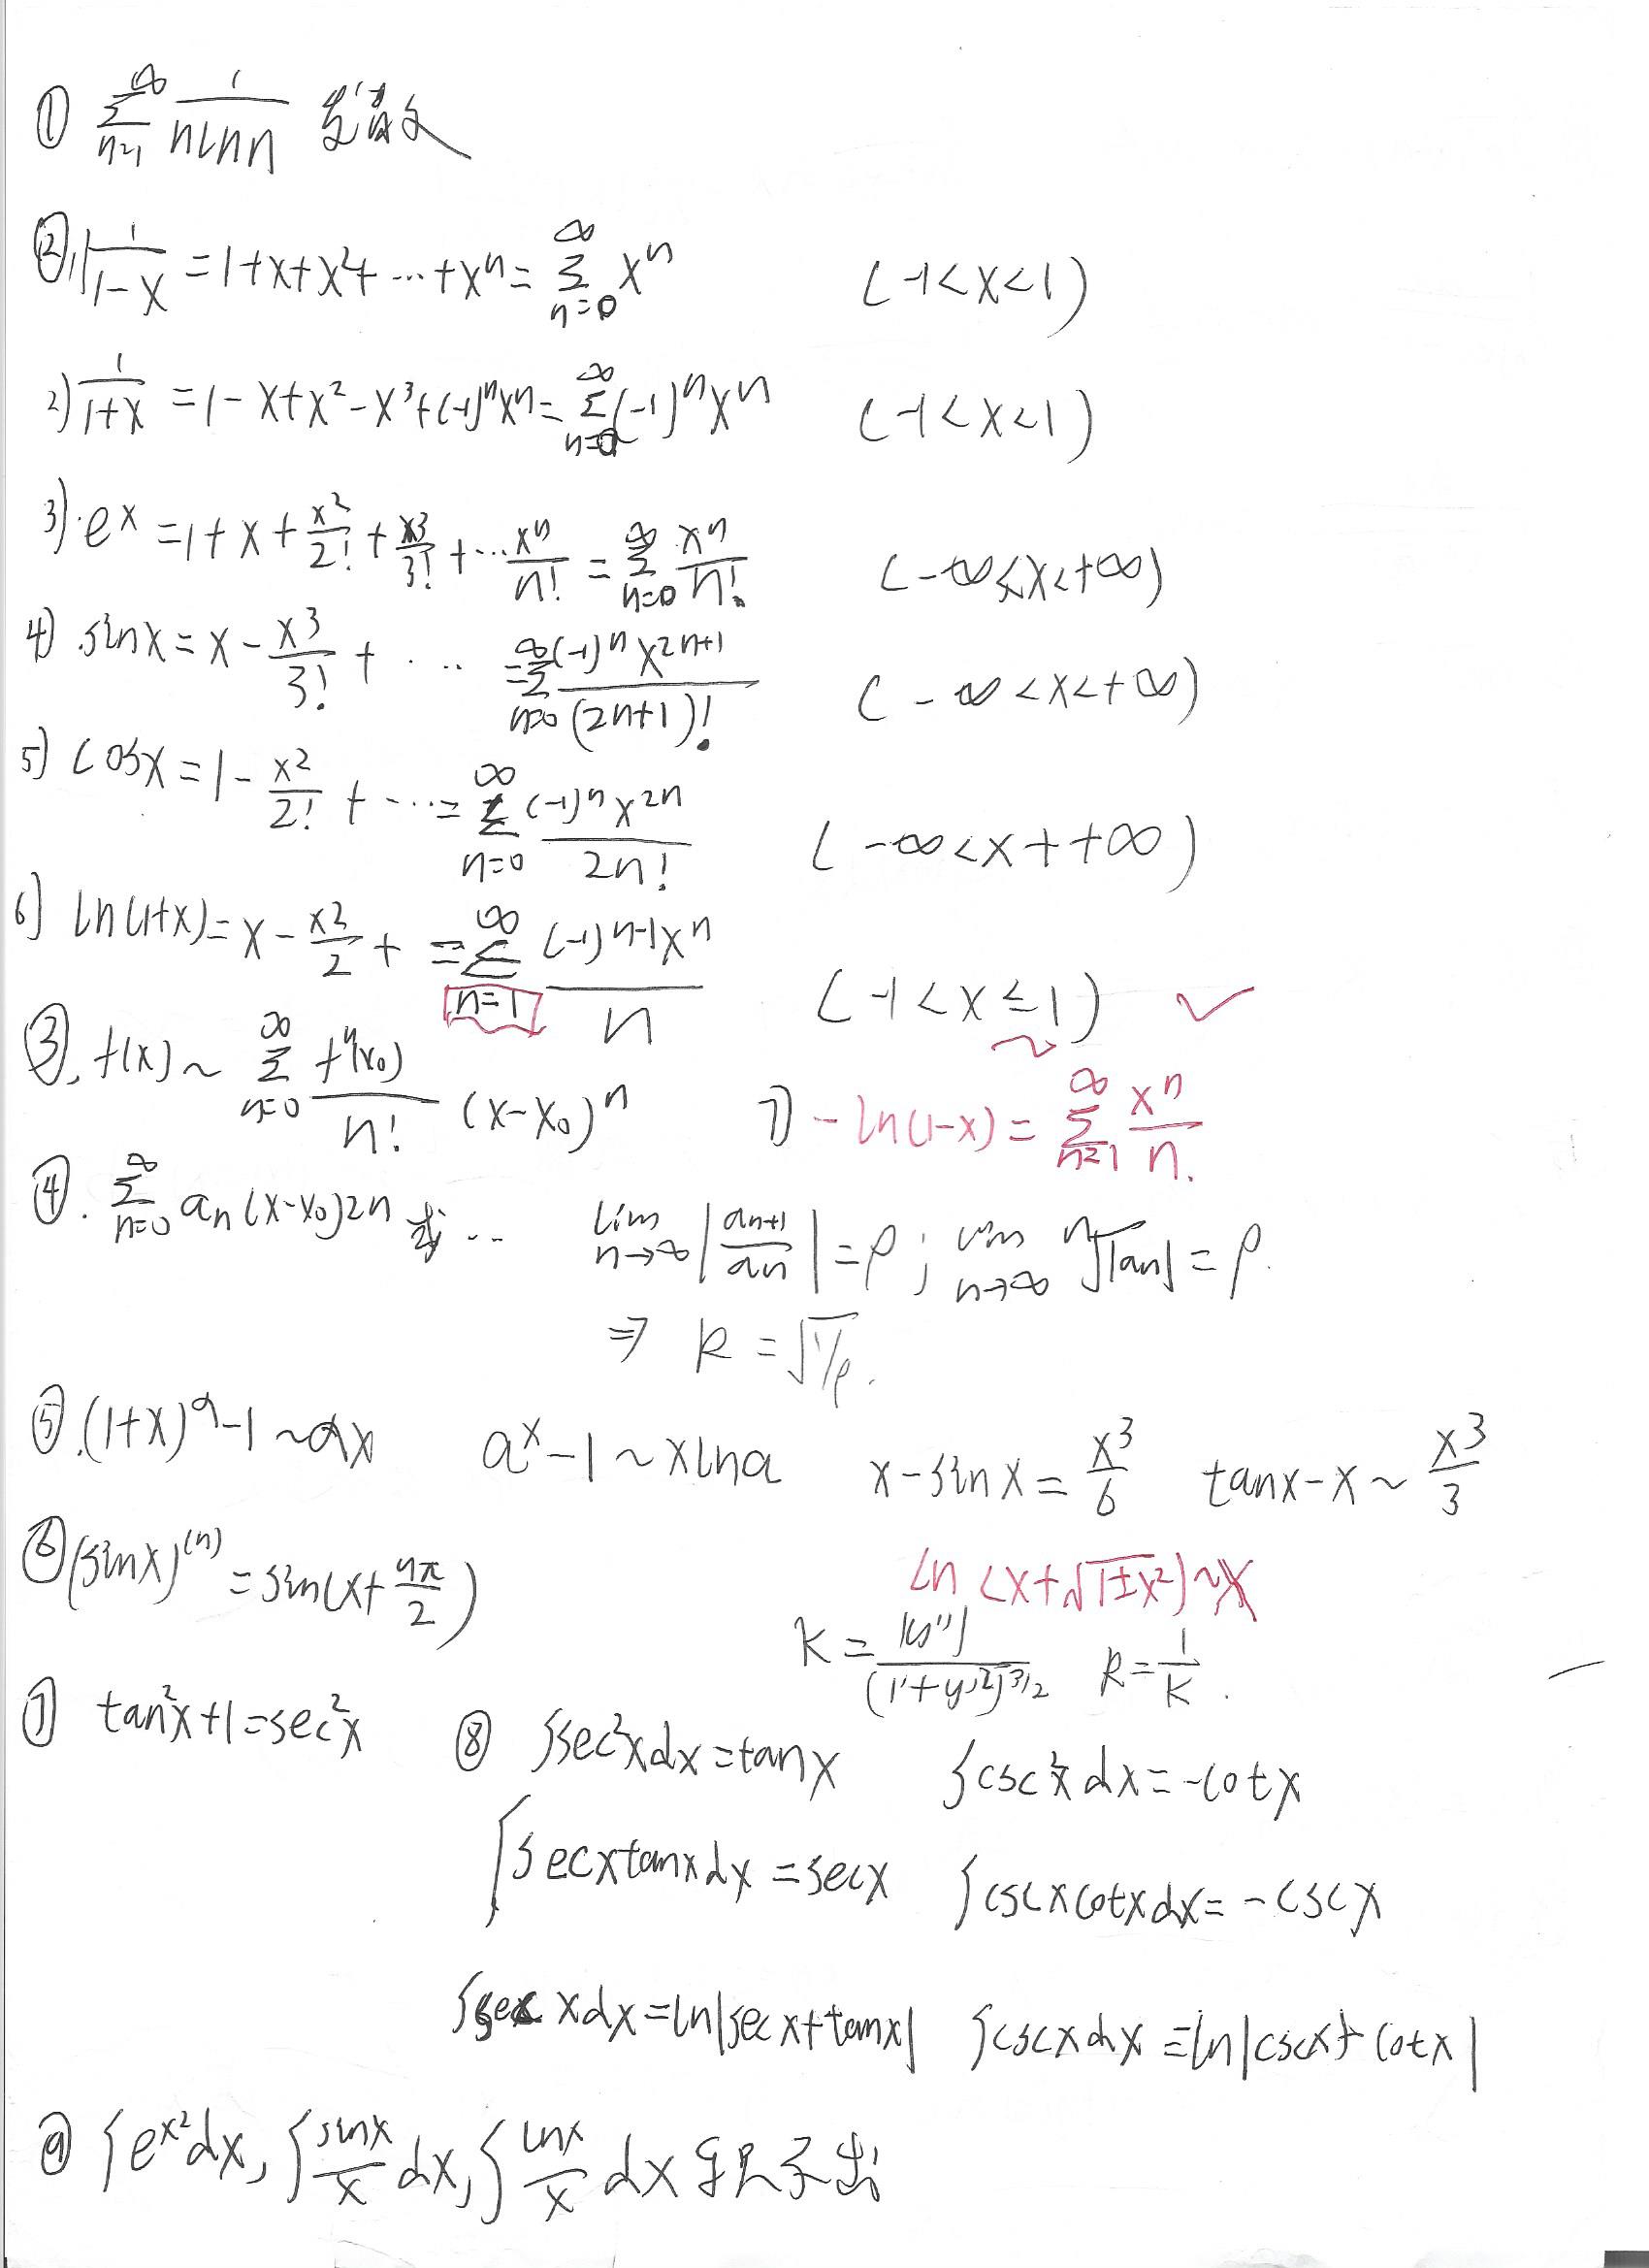 ① ∑_{n=1}^{∞} 1/(n ln n) 发散
②.1) 1/(1-x) = 1+x+x²+…+xⁿ = ∑_{n=0}^{∞} xⁿ (-1<x<1)
2) 1/(1+x) = 1-x+x²-x³+(-1)ⁿxⁿ = ∑_{n=0}^{∞} (-1)ⁿxⁿ (-1<x<1)
3) eˣ = 1+x+x²/2!+x³/3!+…xⁿ/n! = ∑_{n=0}^{∞} xⁿ/n! (-∞<x<+∞)
4) sinx = x - x³/3! + … = ∑_{n=0}^{∞} (-1)ⁿx^{2n+1}/(2n+1)! (-∞<x<+∞)
5) cosx = 1 - x²/2! + … = ∑_{n=0}^{∞} (-1)ⁿx^{2n}/2n! (-∞<x++∞)
6) ln(1+x) = x - x²/2 + = ∑_{n=1}^{∞} (-1)^{n-1}xⁿ/n (-1<x≤1) ✓
③. f(x) ~ ∑_{n=0}^{∞} fⁿ(x₀)/n! (x-x₀)ⁿ
7) -ln(1-x) = ∑_{n=1}^{∞} xⁿ/n.
④. ∑_{n=0}^{∞} aₙ(x-x₀)2n … lim_{n→∞} |aₙ₊₁/aₙ| = ρ; lim_{n→∞} ⁿ√|aₙ| = ρ.
⇒ R = √(1/ρ).
⑤.(1+x)^α-1 ~ αx aˣ-1 ~ xlna x-sinx = x³/6 tanx-x ~ x³/3
⑥ (sinx)^{(n)} = sin(x+nπ/2) ln(x+√(1+x²)) ~ x
K = |y''|/(1+y'²)^{3/2} R = 1/K.
⑦ tan²x+1=sec²x ⑧ ∫sec²xdx=tanx ∫csc²xdx=-cotx
∫secxtanxdx=secx ∫cscxcotxdx=-cscx
∫secxdx=ln|secx+tanx| ∫cscxdx=ln|cscx+cotx|
⑨ ∫e^{x²}dx, ∫sinx/x dx, ∫lnx/x dx 积不出